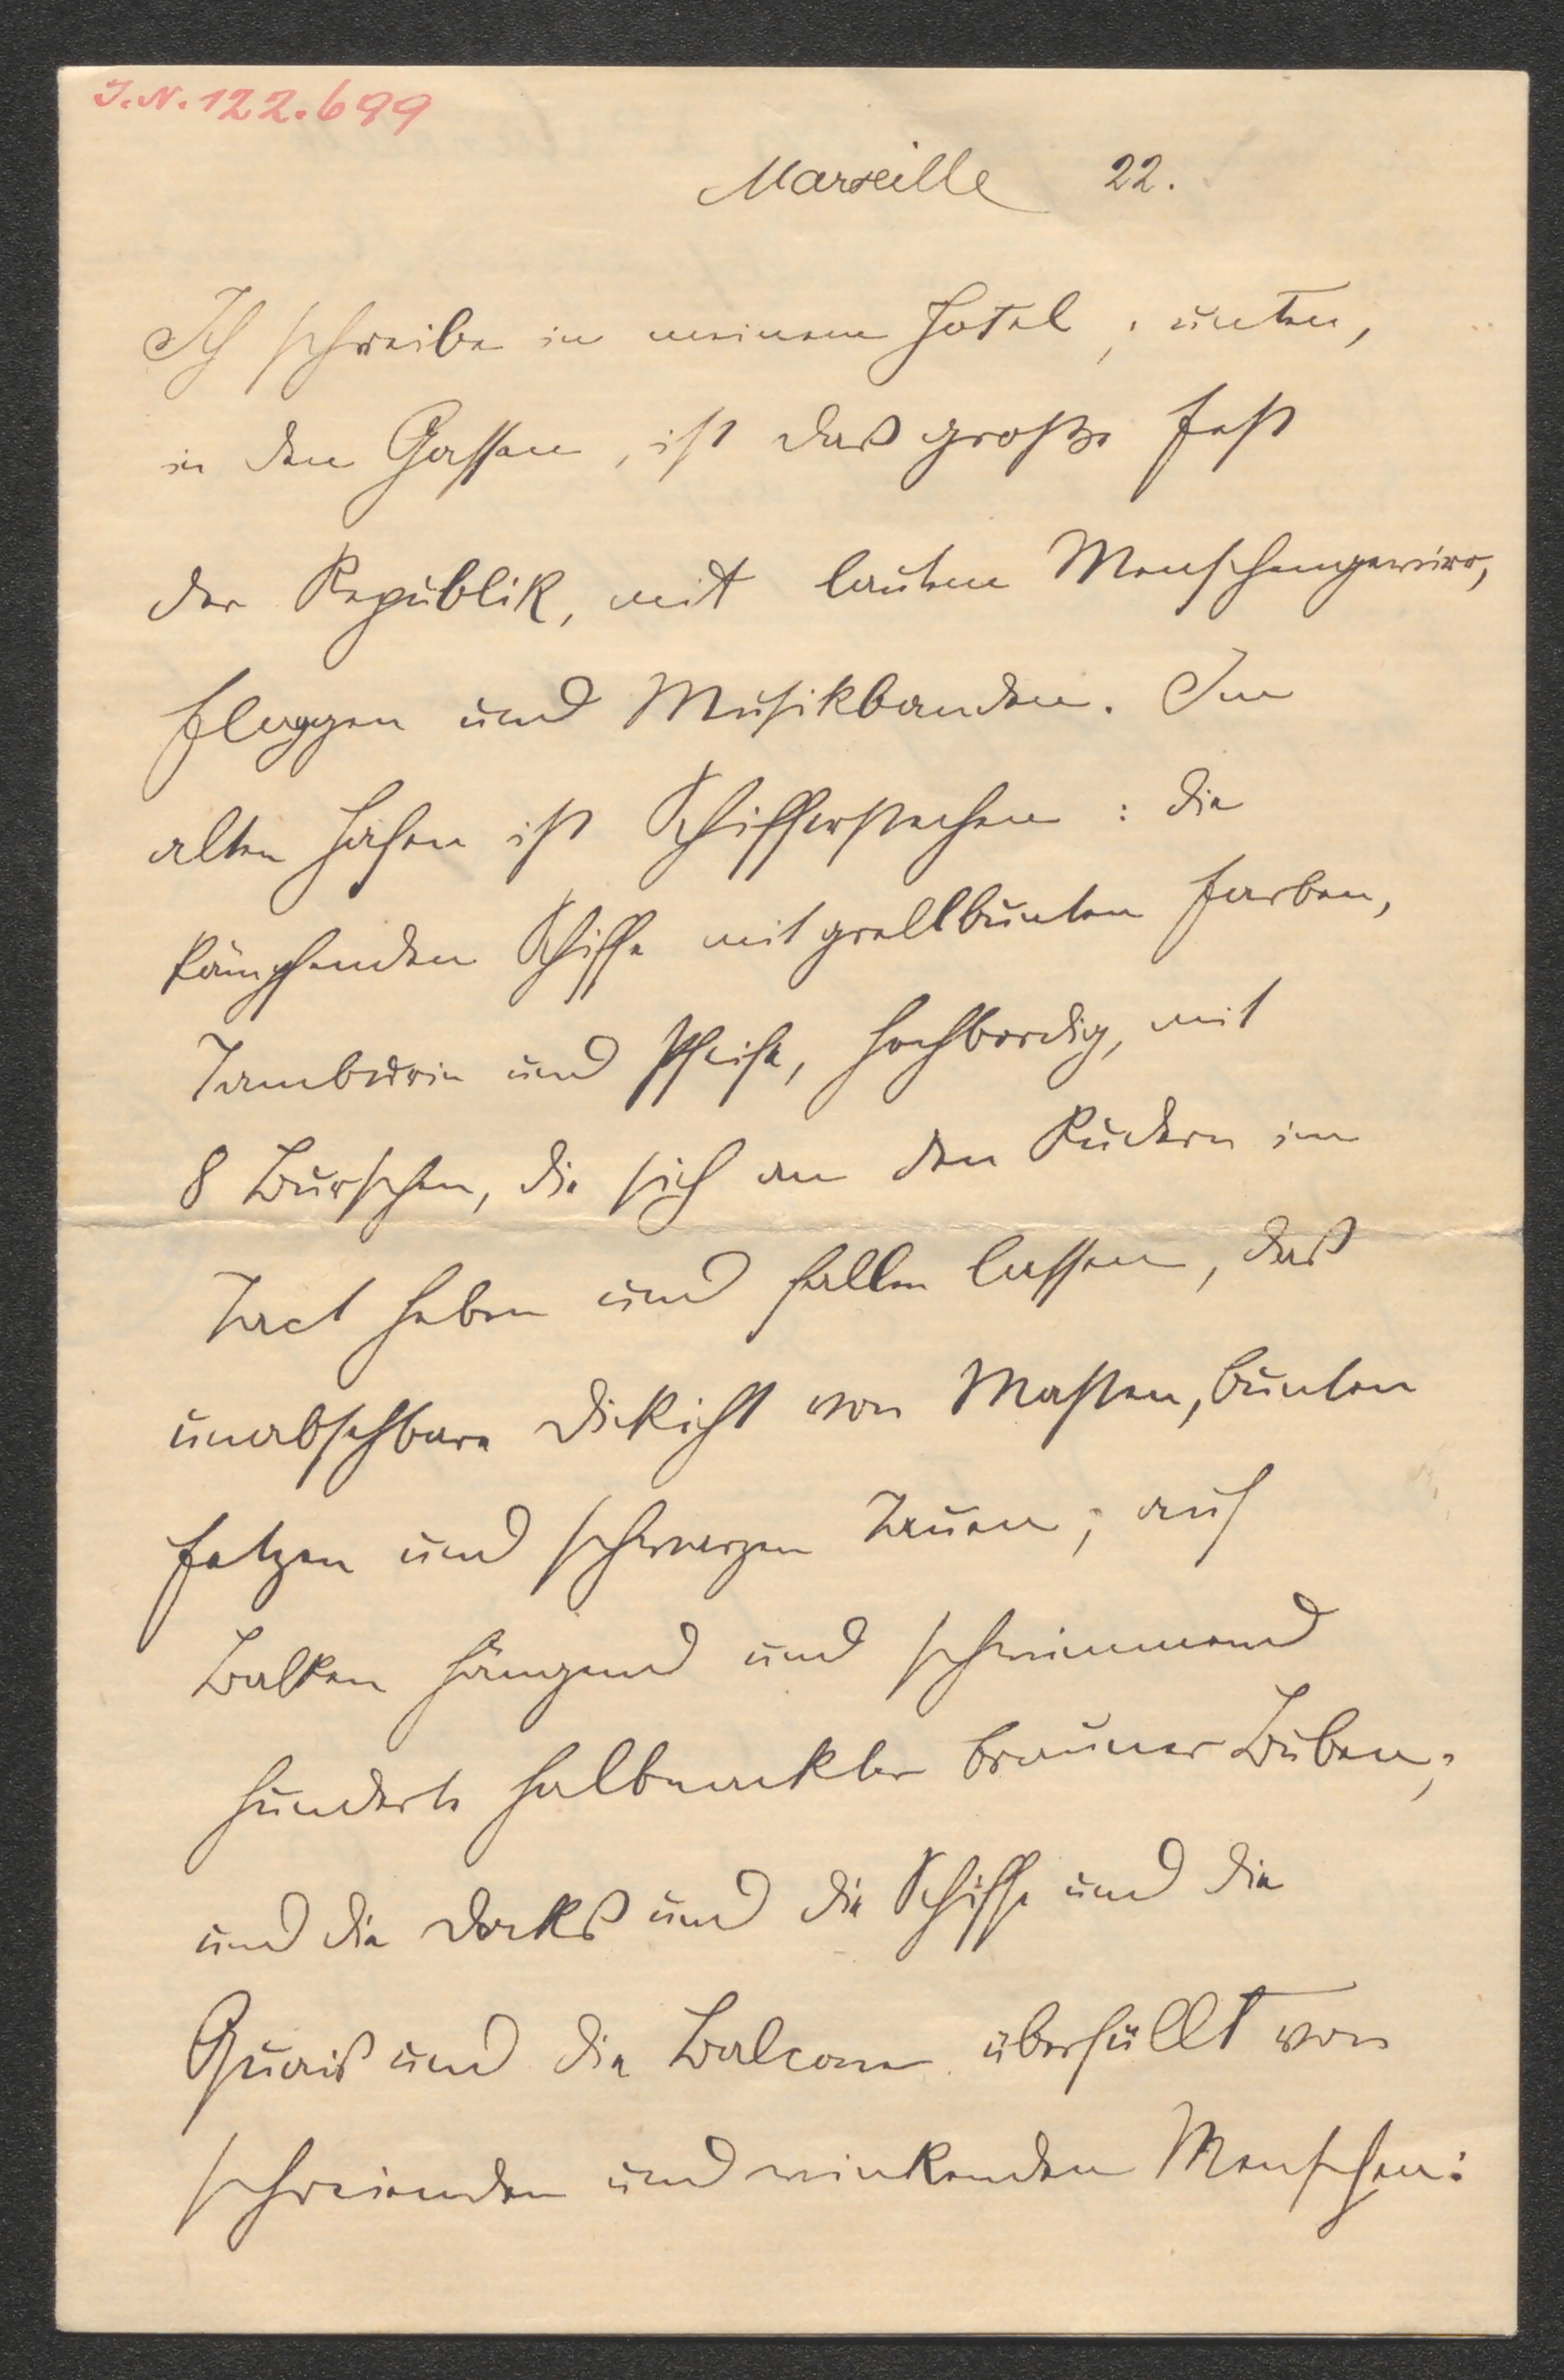 I.N. 122.699
Marseille 22.
Ich schreibe in meinem Hotel; unten,
in den Gassen, ist das große Fest
der Republik, mit lautem Menschengewirr,
Flaggen und Musikbanden. Im
alten Hafen ist Schifferstechen: die
kämpfenden Schiffe mit grellbunten Farben,
Tambourin und Pfeife, hochbordig, mit
8 Burschen, die sich an den Rudern im
Tact heben und fallen lassen, das
unabsehbare Dickicht von Masten, bunten
Fetzen und schwarzen Tauen; auf
Balken hängend und schwimmend
hunderte halbnackter brauner Buben;
und die Docks und die Schiffe und die
Quais und die Balcone überfüllt von
schreienden und winkenden Menschen: